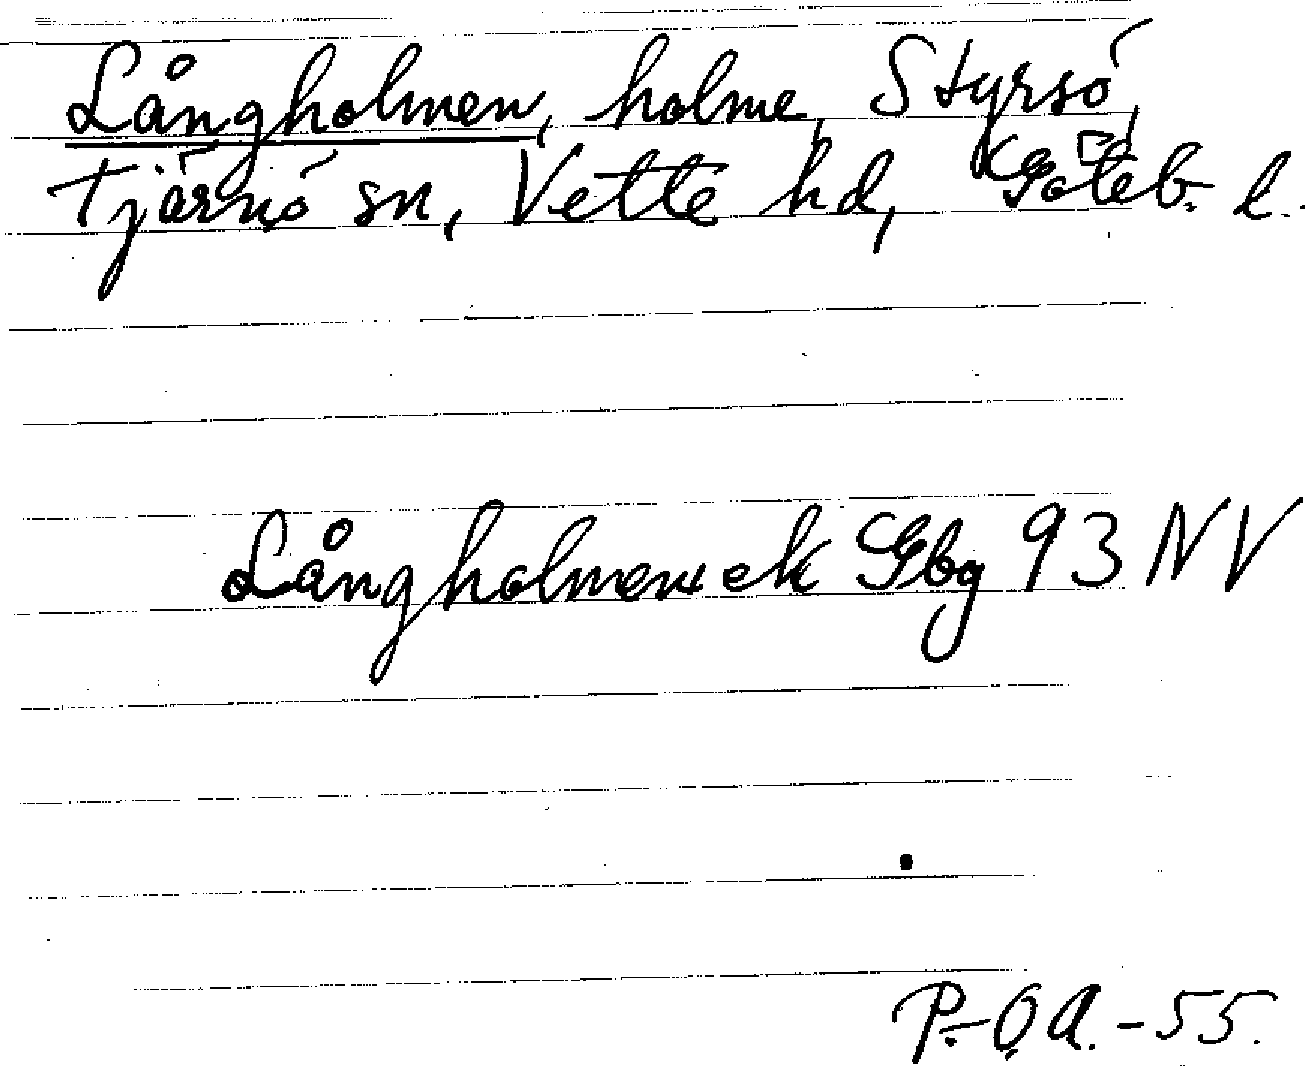 Långholmen, holme, Styrsö,
Tjärnö sn, Vette hd, Göteb. l.
Långholmen ek Gbg 93 NV
P.-O. A. -55.